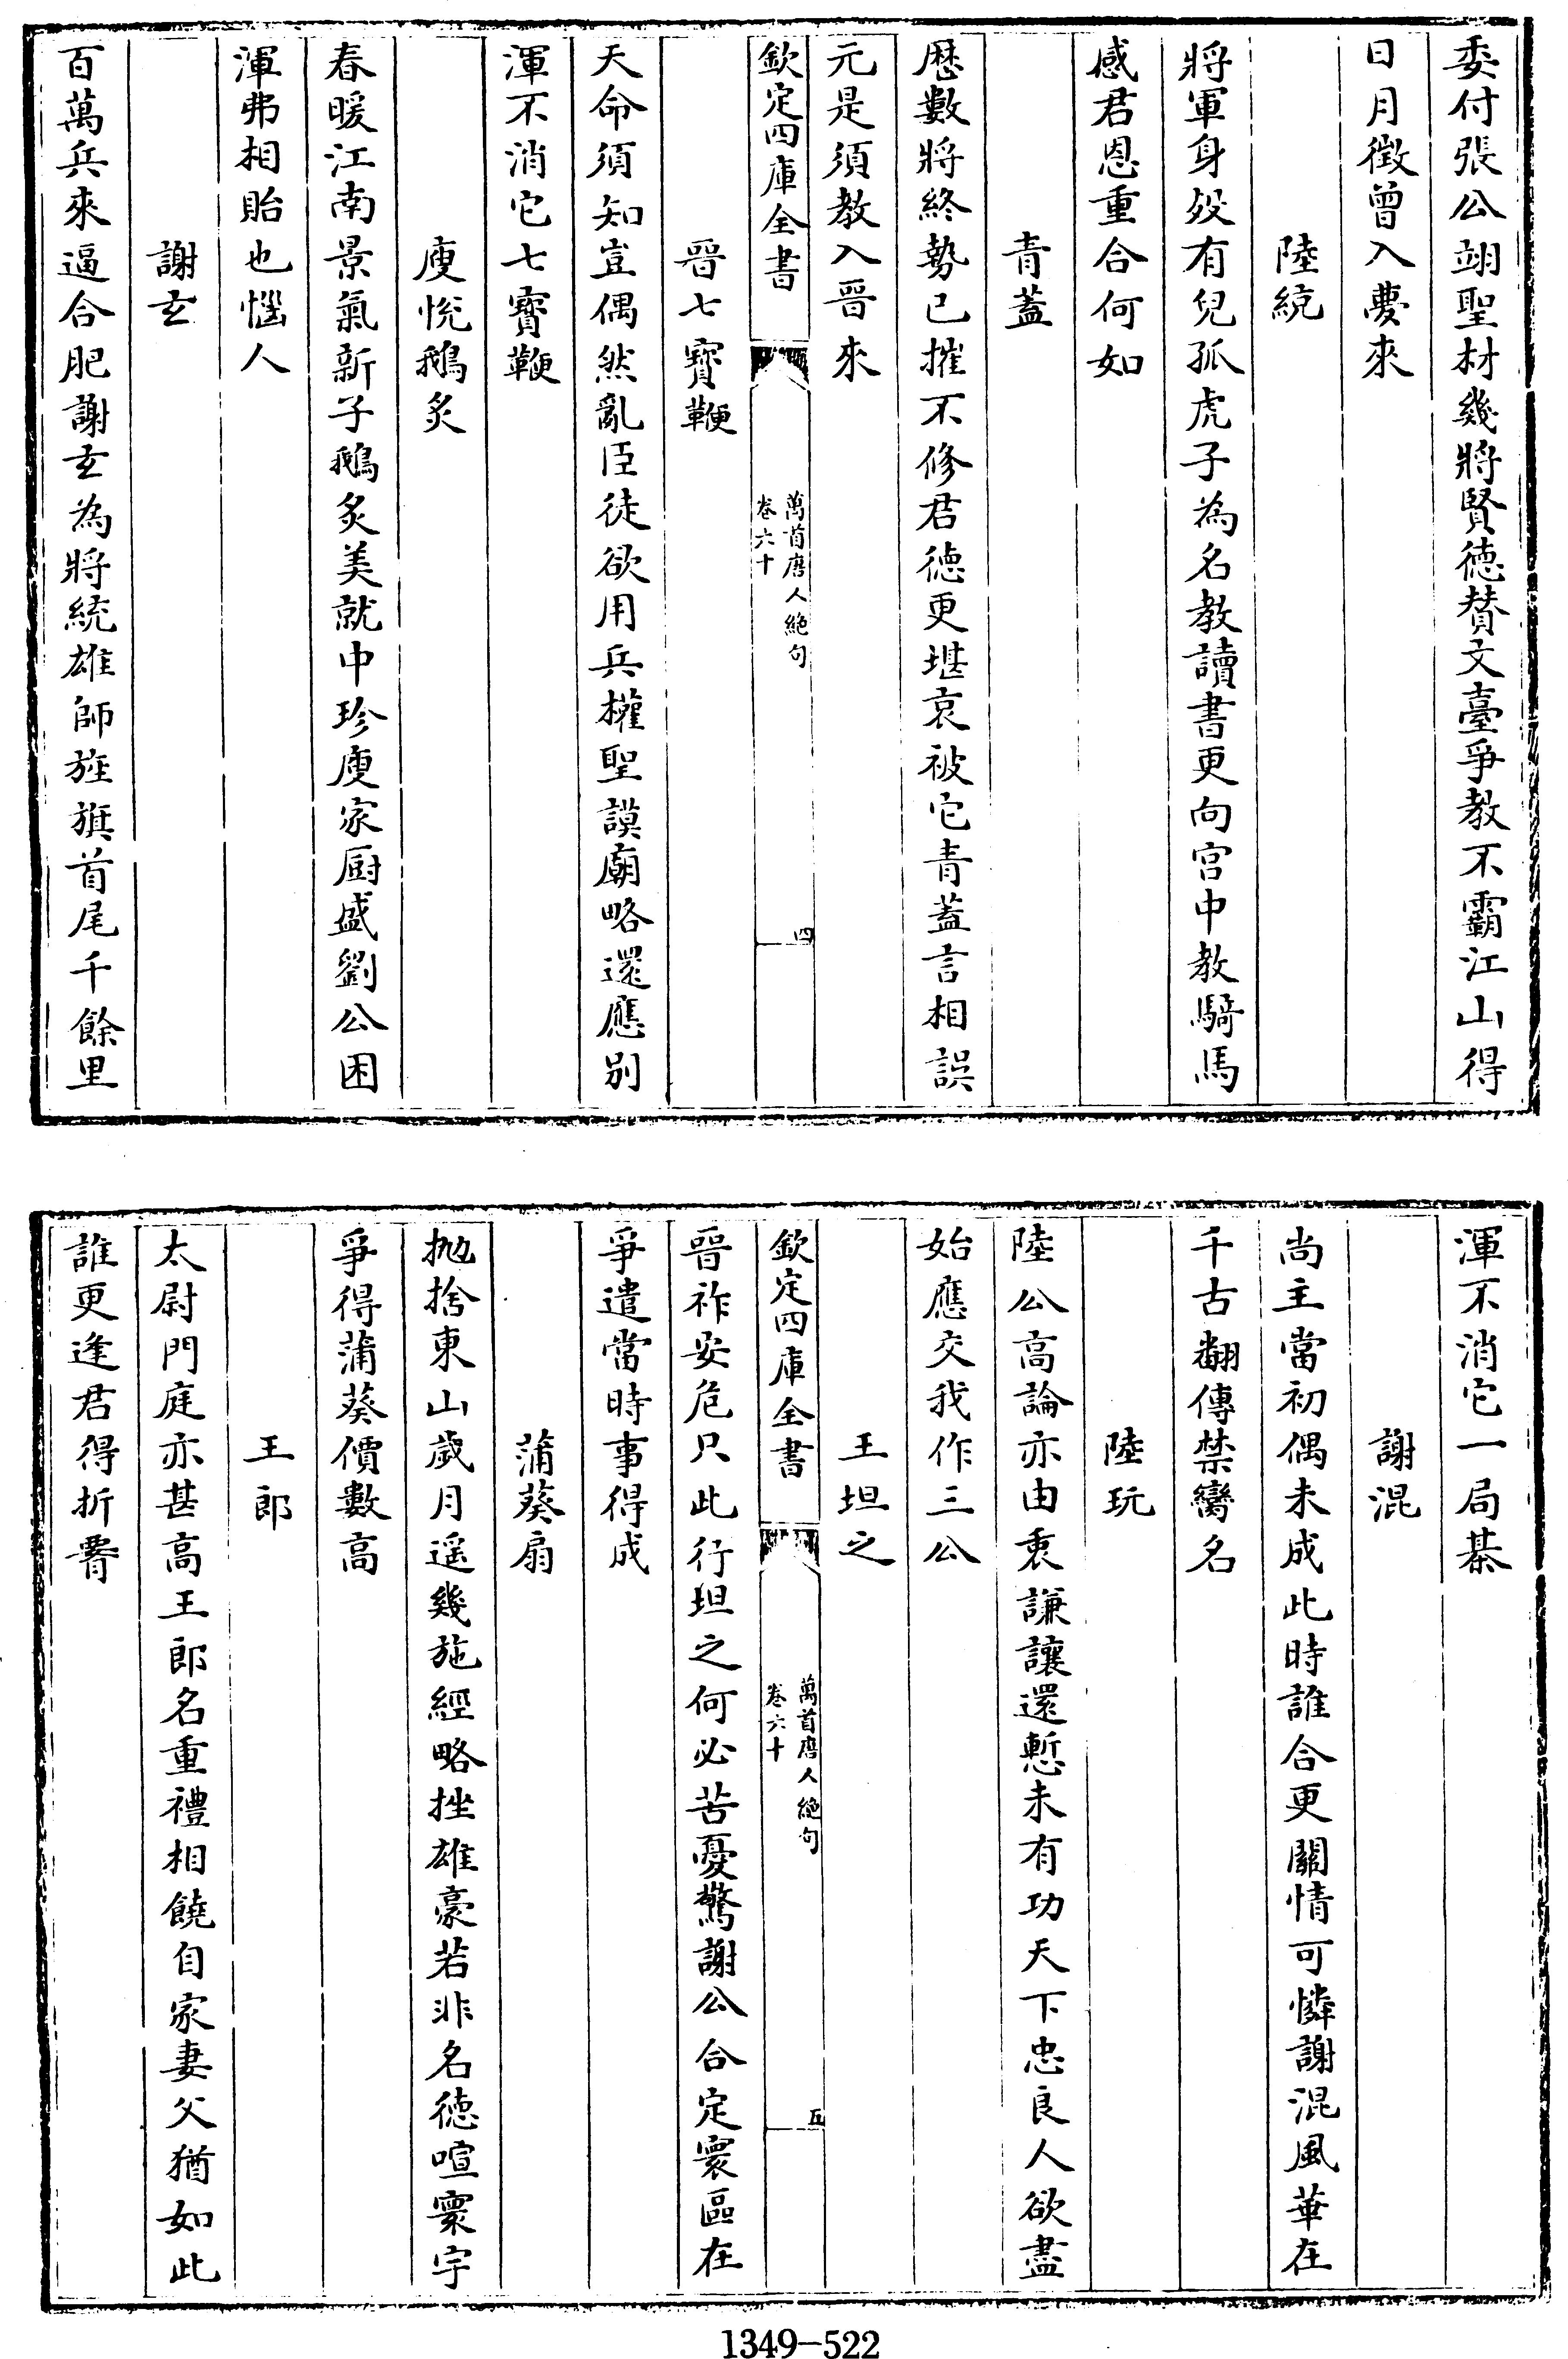 委付張公翊聖材幾將賢徳賛文臺爭教不霸江山得
日月徴曽入夢來
陸統
將軍身殁有兒孤虎子為名教讀書更向宫中教騎馬
感君恩重合何如
青蓋
厯數將終勢已摧不修君徳更堪哀被它青蓋言相誤
元是須教入晉來
欽定四庫全書
萬首唐人絶句
卷六十
四
晉七寳鞭
天命須知豈偶然亂臣徒欲用兵權聖謨廟略還應别
渾不消它七寳鞭
庾悅鵝炙
春暖江南景氣新子鵝炙美就中珍庾家厨盛劉公困
渾弗相貽也惱人
謝玄
百萬兵來逼合肥謝玄為將統雄師旌旗首尾千餘里
渾不消它一局棊
謝混
尚主當初偶未成此時誰合更關情可憐謝混風華在
千古翻傳禁臠名
陸玩
陸公高論亦由衷謙讓還慙未有功天下忠良人欲盡
始應交我作三公
王坦之
欽定四庫全書
萬首唐人絶句
卷六十
五
晉祚安危只此行坦之何必苦憂驚謝公合定寰區在
爭遣當時事得成
蒲葵扇
抛捨東山歲月遥幾施經略挫雄豪若非名徳喧寰宇
爭得蒲葵價數高
王郎
太尉門庭亦甚高王郎名重禮相饒自家妻父猶如此
誰更逢君得折腰
1349-522